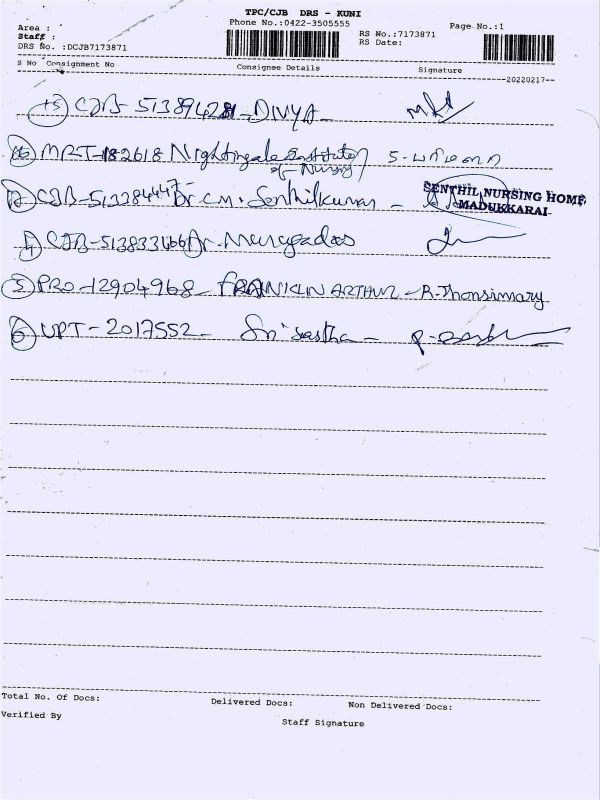 TPC/CJB DRS - KUNI
Area :
Phone No.:0422-3505555
Page No.:1
Staff :
RS No.:7173871
DRS No. :DCJB7173871
RS Date:
S No Consignment No Consignee Details Signature
20220217
CJB- 513894281-DIVYA-
MRT-182618 Nightingale Institute of Nursing
CJB-513284447- Dr. C.M. Senthilkumar -
SENTHIL NURSING HOME
MADUKKARAI.
4 CJB-513833466 Dr. Murugadas
5 PRO-12904968- FRANKLIN ARTHUR - R. Jhonsimary
6 UPT-2017552- Sri sastha -
Total No. Of Docs: Delivered Docs: Non Delivered Docs:
Verified By
Staff Signature